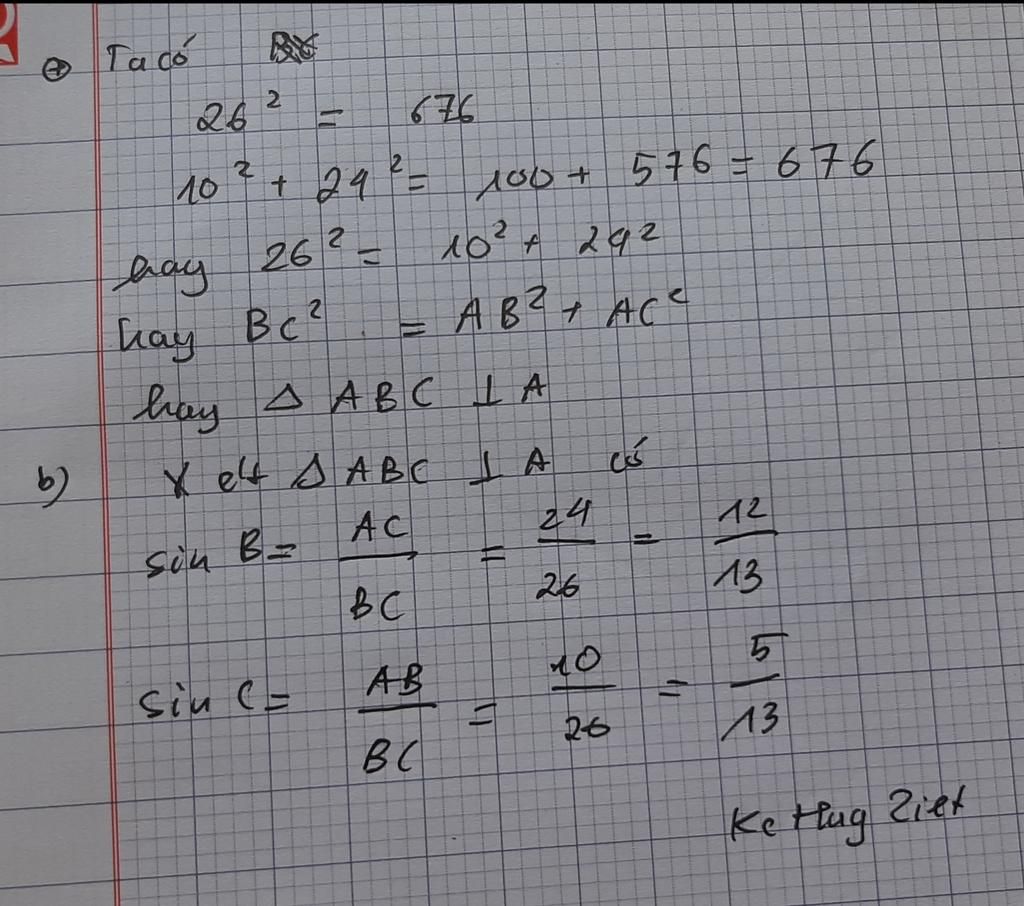 ⊕ Ta có
26² = 676
10² + 24² = 100 + 576 = 676
hay 26² = 10² + 24²
hay BC² = AB² + AC²
hay Δ ABC ⊥ A
b) Xét Δ ABC ⊥ A có
sin B = AC/BC = 24/26 = 12/13
sin C = AB/BC = 10/26 = 5/13